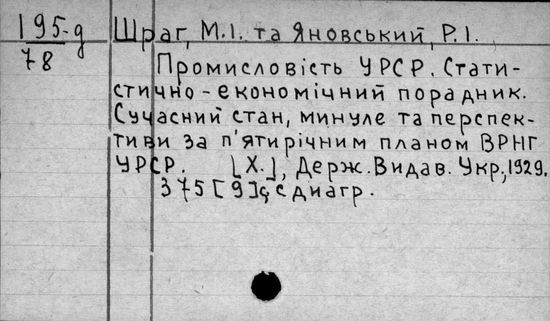 195-д
78
Шраг, М.І. та Яновський, Р.І.
Промисловість УРСР. Стати-
стично-економічний порадник.
Сучасний стан, минуле та перспек-
тиви за п'ятирічним планом ВРНГ
УРСР. [Х.], Держ. Видав. Укр., 1929.
375 [9] с. діагр.